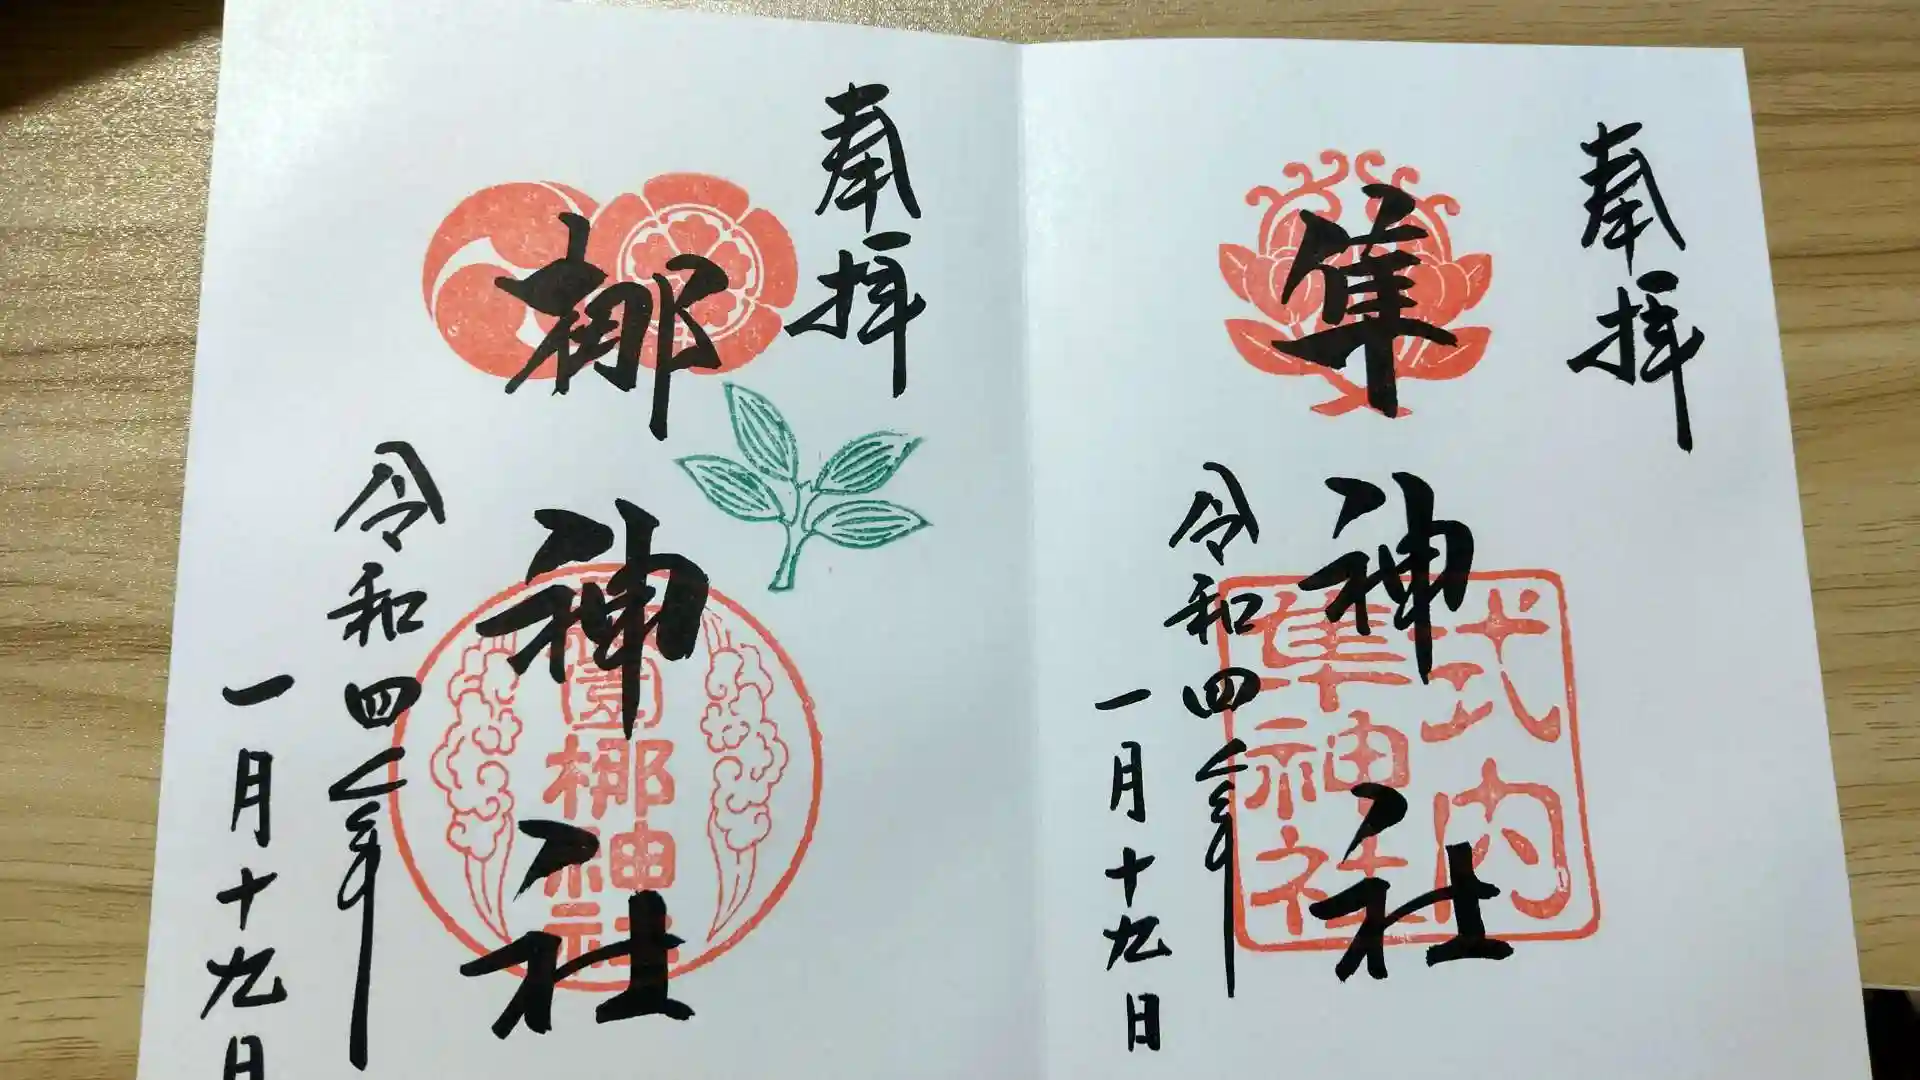 奉拝
隼神社
式内
隼神社
令和四年
一月十九日
奉拝
梛神社
園
梛神社
令和四年
一月十九日